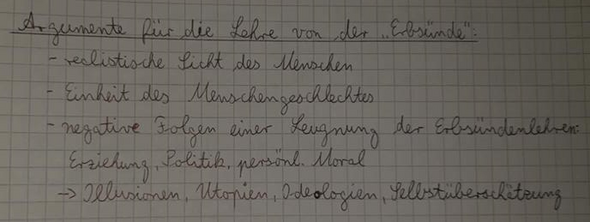 Argumente für die Lehre von der „Erbsünde":
- realistische Sicht des Menschen
- Einheit des Menschengeschlechtes
- negative Folgen einer Leugnung der Erbsündenlehren:
Erziehung, Politik, persönl. Moral
-> Illusionen, Utopien, Ideologien, Selbstüberschätzung